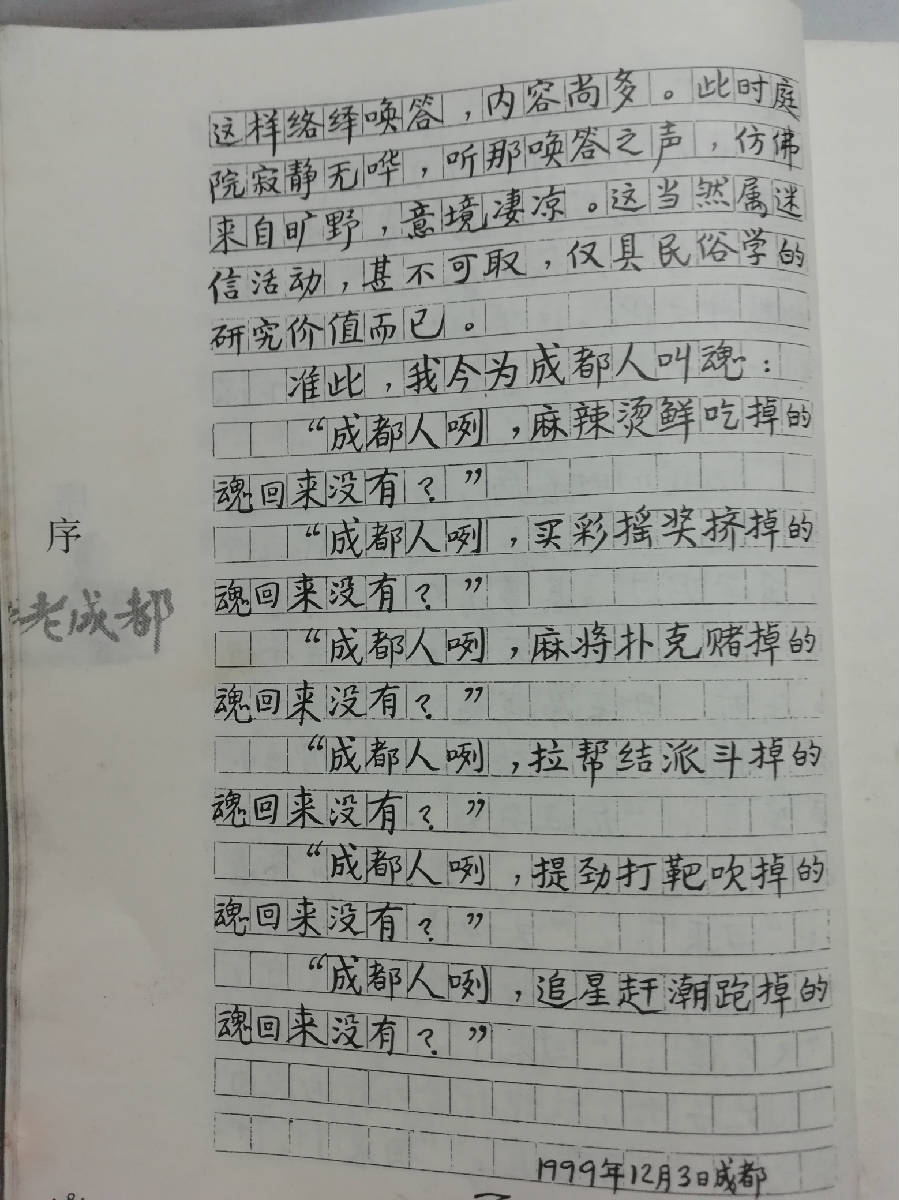 这样络绎唤答，内容尚多。此时庭
院寂静无哗，听那唤答之声，仿佛
来自旷野，意境凄凉。这当然属迷
信活动，甚不可取，仅具民俗学的
研究价值而已。
准此，我今为成都人叫魂：
“成都人咧，麻辣烫鲜吃掉的
魂回来没有？”
“成都人咧，买彩摇奖挤掉的
魂回来没有？”
“成都人咧，麻将扑克赌掉的
魂回来没有？”
“成都人咧，拉帮结派斗掉的
魂回来没有？”
“成都人咧，提劲打靶吹掉的
魂回来没有？”
“成都人咧，追星赶潮跑掉的
魂回来没有？”
1999年12月3日成都
序
老成都